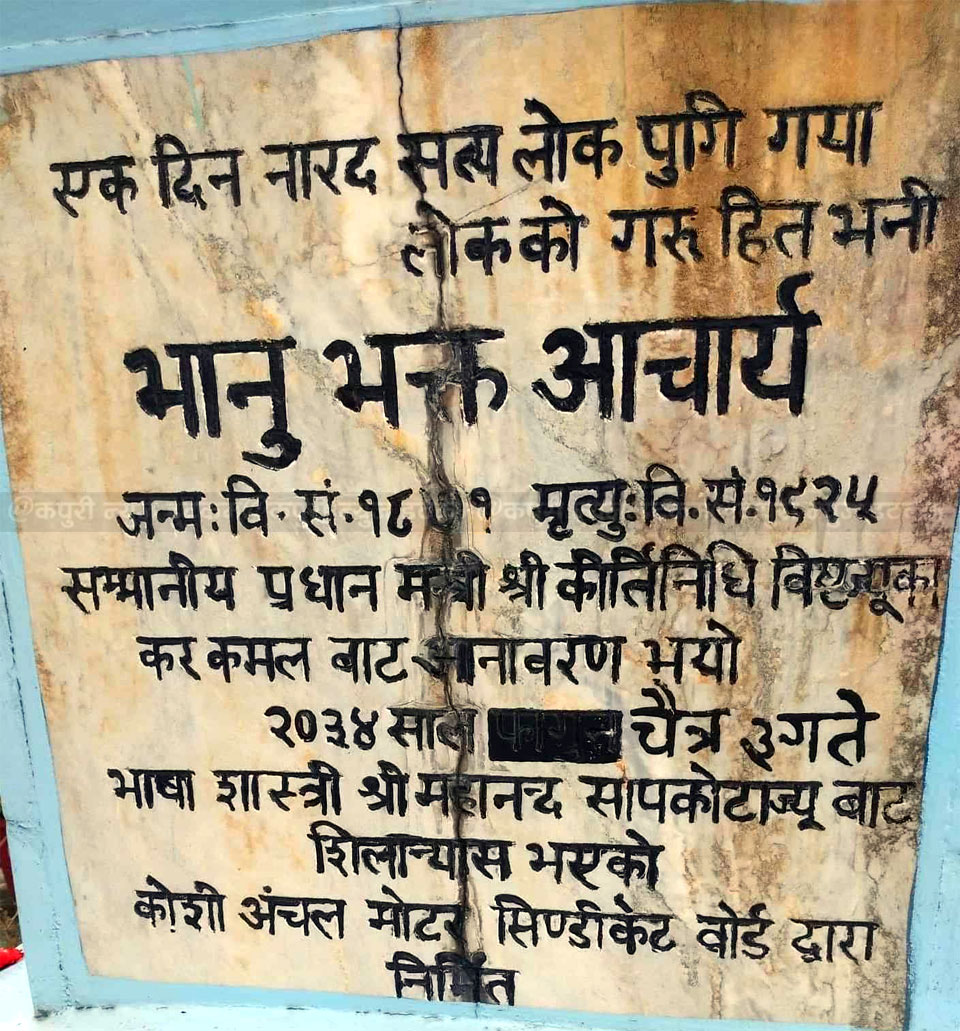 एक दिन नारद सत्य लोक पुगि गया
लोकको गरू हित भनी
भानु भक्त आचार्य
जन्म: वि. सं. १८७१ मृत्यु: वि. सं. १९२५
सम्मानीय प्रधान मन्त्री श्री कीर्तिनिधि विष्टज्यूका
कर कमल बाट अनावरण भयो
२०३४ साल फागुन चैत्र ३ गते
भाषा शास्त्री श्री महानन्द सापकोटाज्यू बाट
शिलान्यास भएको
कोशी अंचल मोटर सिण्डीकेट बोर्ड द्वारा
निर्मित
@कपुरी